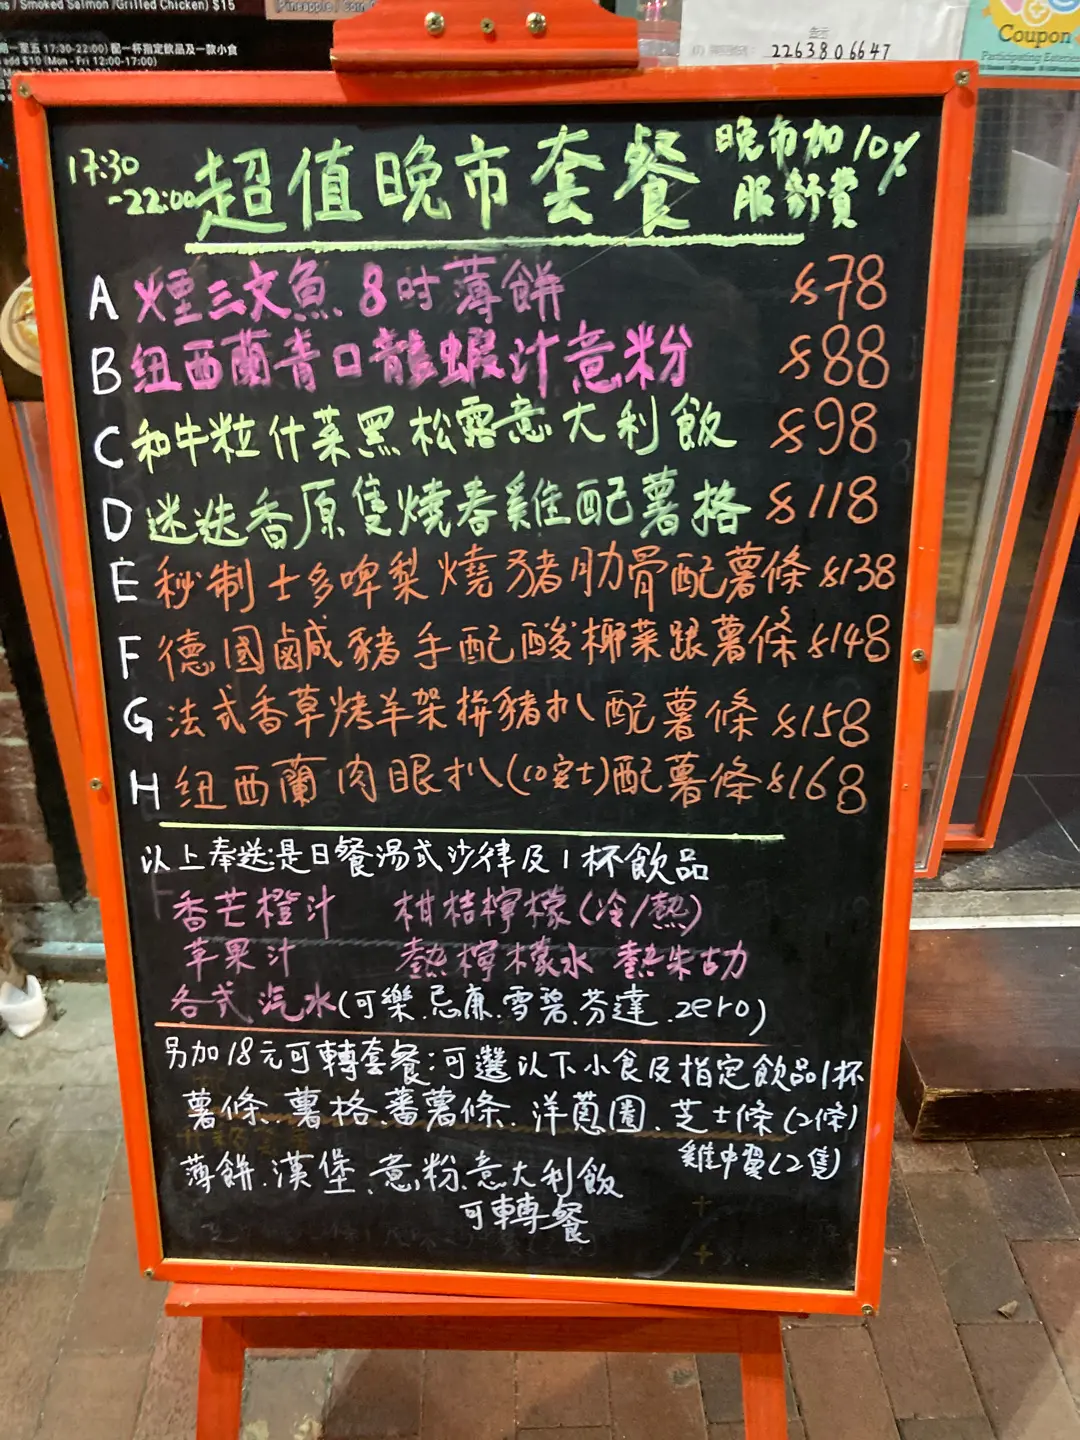 ns / Smoked Salmon /Grilled Chicken) $15
一至五 17:30-22:00) 配一杯指定飲品及一款小食
add $10 (Mon - Fri 12:00-17:00)
2263806647
Coupon
17:30
-22:00
超值晚市套餐
晚市加10%
服務費
A 煙三文魚8吋薄餅 $78
B 纽西蘭青口龍蝦汁意粉 $88
C 和牛粒什菜黑松露意大利飯 $98
D 迷迭香原隻燒春雞配薯格 $118
E 秘制士多啤梨燒豬肋骨配薯條 $138
F 德國鹹豬手配酸椰菜跟薯條 $148
G 法式香草烤羊架拼豬扒配薯條 $158
H 纽西蘭肉眼扒(10安士)配薯條 $168
以上奉送:是日餐湯或沙律及1杯飲品
香芒橙汁 柑桔檸檬(冷/熱)
苹果汁 熱檸檬水 熱朱古力
各式汽水(可樂.忌廉.雪碧.芬達.zero)
另加18元可轉套餐:可選以下小食及指定飲品1杯
薯條、薯格、蕃薯條、洋蔥圈、芝士條(2條)
雞中翼(2隻)
薄餅.漢堡、意粉、意大利飯
可轉餐